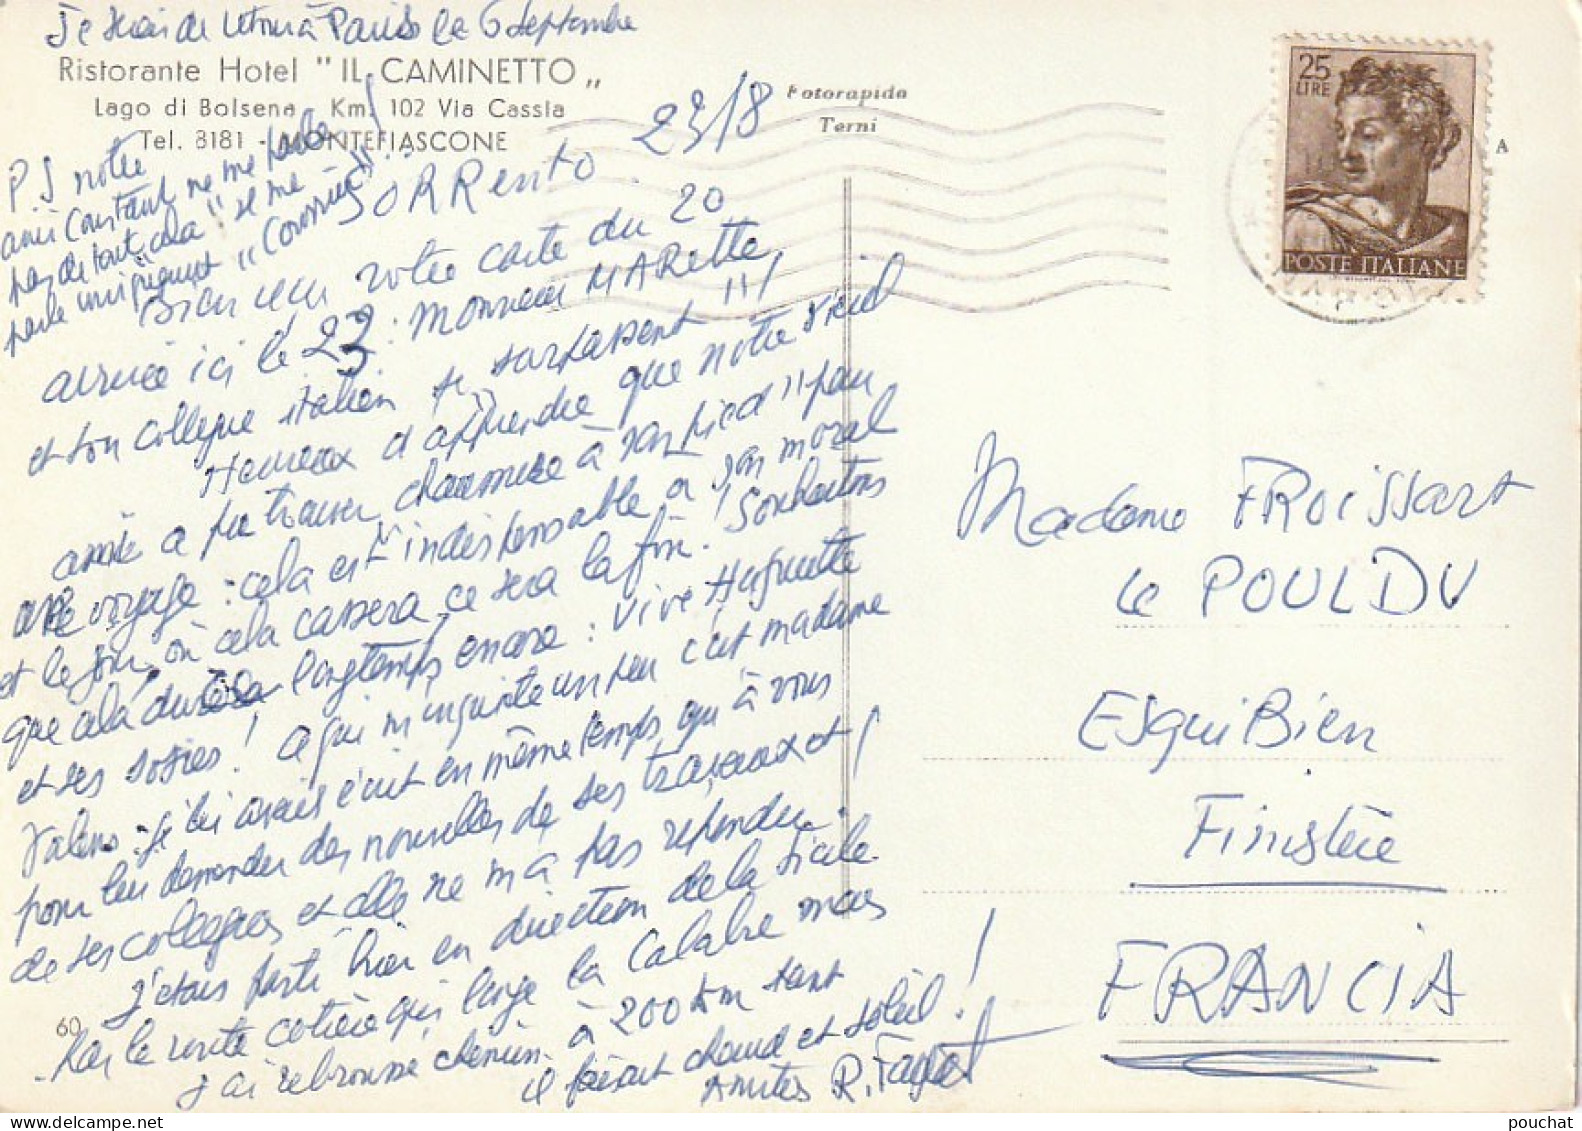 Je serai de retour à Paris le 6 septembre
Ristorante Hotel "IL CAMINETTO„
Lago di Bolsena - Km. 102 Via Cassia
Tel. 8181 - MONTEFIASCONE
Fotorapida
Terni
25
LIRE
POSTE ITALIANE
A
P.S notre
ami Constant ne me parle
pas de tout cela" il me
parle uniquement
SORRENTO 23/8
Bien reçu votre carte du 20
arrivée ici le 23. Monsieur MARette
et son collègue italien se surpassent !!!
Heureux d'apprendre que notre vieil
amie a pu trouver chaussure à son pied" pour
voyage : cela est indispensable a son moral
et le jour où cela cassera, ce sera la fin! Souhaitons
que cela durera longtemps encore : Vive Huguette
et ses ! ce qui m'inquiète un peu c'est madame
: je lui avais écrit en même temps qu'à vous
pour lui demander des nouvelles de ses travaux et
de ses collègues et elle ne m'a pas répondu!
J'étais parti hier en direction de la Sicile
par la route cotière qui longe la Calabre mais
j'ai rebroussé chemin à 200 km tant
il faisait chaud et soleil!
Amitiés R. Fagot
60
Madame FROISSART
Le POULDU
EsquiBien
Finistère
FRANCIA
pouchat